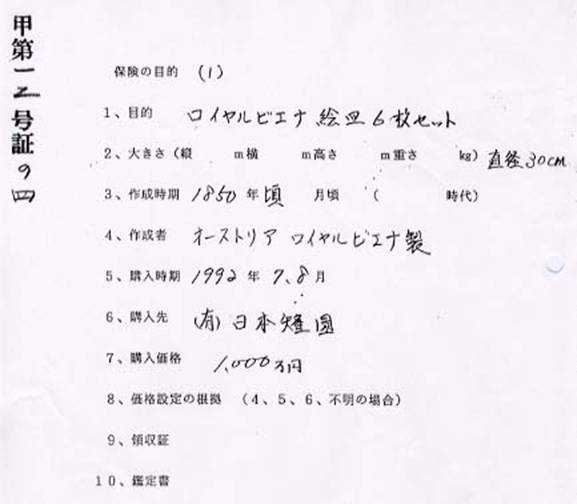 甲第一二号証の四
保険の目的 (1)
1、目的 ロイヤルビエナ絵皿6枚セット
2、大きさ（縦 m横 m高さ m重さ kg）直径30cm
3、作成時期 1850年頃 月頃 （ 時代）
4、作成者 オーストリア ロイヤルビエナ製
5、購入時期 1992年7、8月
6、購入先 (有)日本
7、購入価格 1,000万円
8、価格設定の根拠 （4、5、6、不明の場合）
9、領収証
10、鑑定書